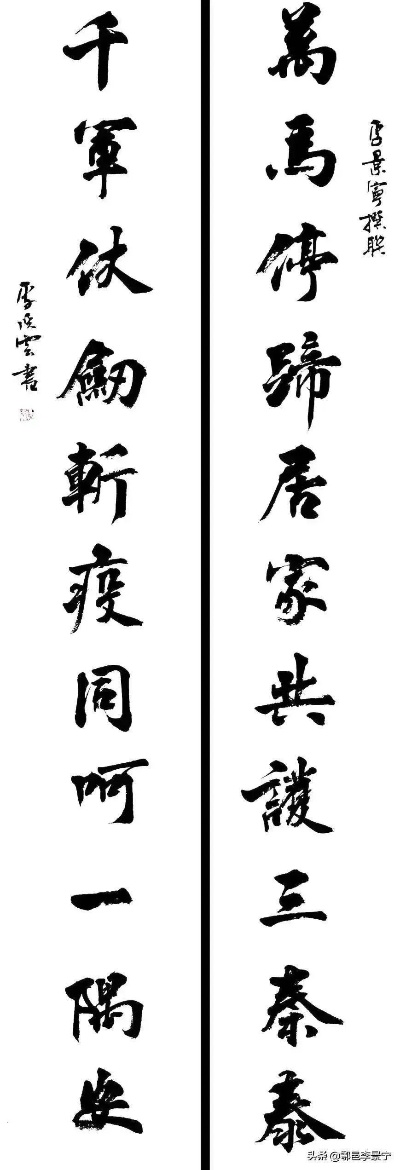 萬馬停蹄居家共護三秦泰
李景寧撰聯
千軍仗劍斬疫同呵一隅安
雲書
头条@鄠邑李景宁